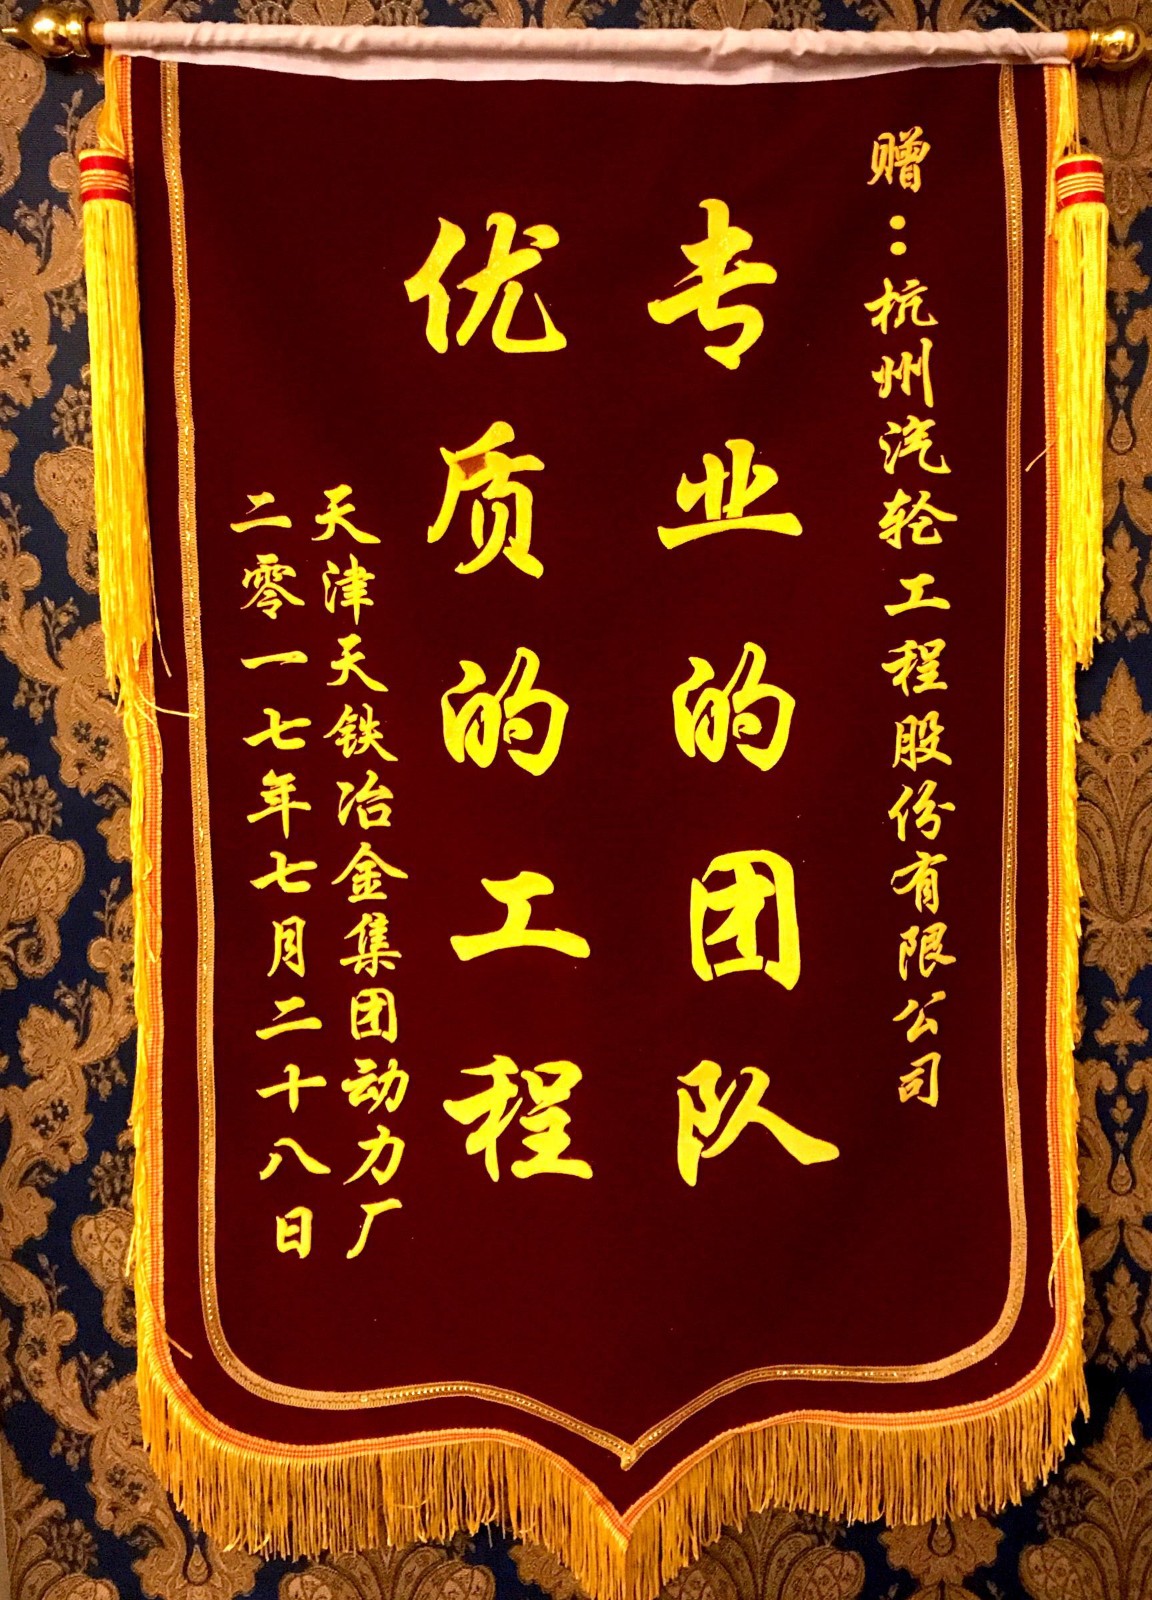 赠：杭州汽轮工程股份有限公司
专业的团队
优质的工程
天津天铁冶金集团动力厂
二零一七年七月二十八日